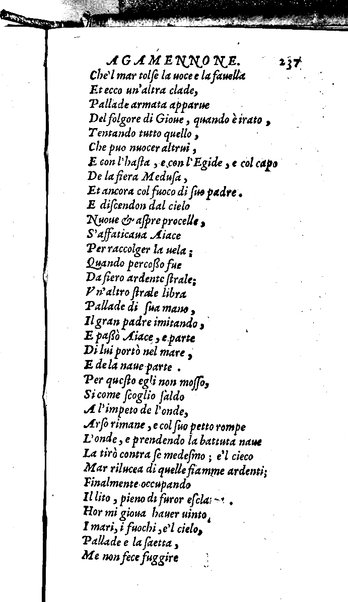 AGAMENNONE. 237
Che'l mar tolse la uoce e la fauella
Et ecco un'altra clade,
Pallade armata apparue
Del folgore di Gioue, quando è irato,
Tentando tutto quello,
Che puo nuocer altrui,
E con l'hasta, e con l'Egide, e col capo
De la fiera Medusa,
Et ancora col fuoco di suo padre.
E discendon dal cielo
Nuoue & aspre procelle,
S'affaticaua Aiace
Per raccolger la uela;
Quando percoßo fue
Da fiero ardente strale;
Vn'altro strale libra
Pallade di sua mano,
Il gran padre imitando,
E paßò Aiace, e parte
Di lui portò nel mare,
E de la naue parte.
Per questo egli non mosso,
Si come scoglio saldo
A l'impeto de l'onde,
Arso rimane, e col suo petto rompe
L'onde, e prendendo la battuta naue
La tirò contra se medesmo; e'l cieco
Mar rilucea di quelle fiamme ardenti;
Finalmente occupando
Il lito, pieno di furor escla
Hor mi gioua hauer uinto
I mari, i fuochi, e'l cielo,
Pallade e la saetta,
Me non fece fuggire